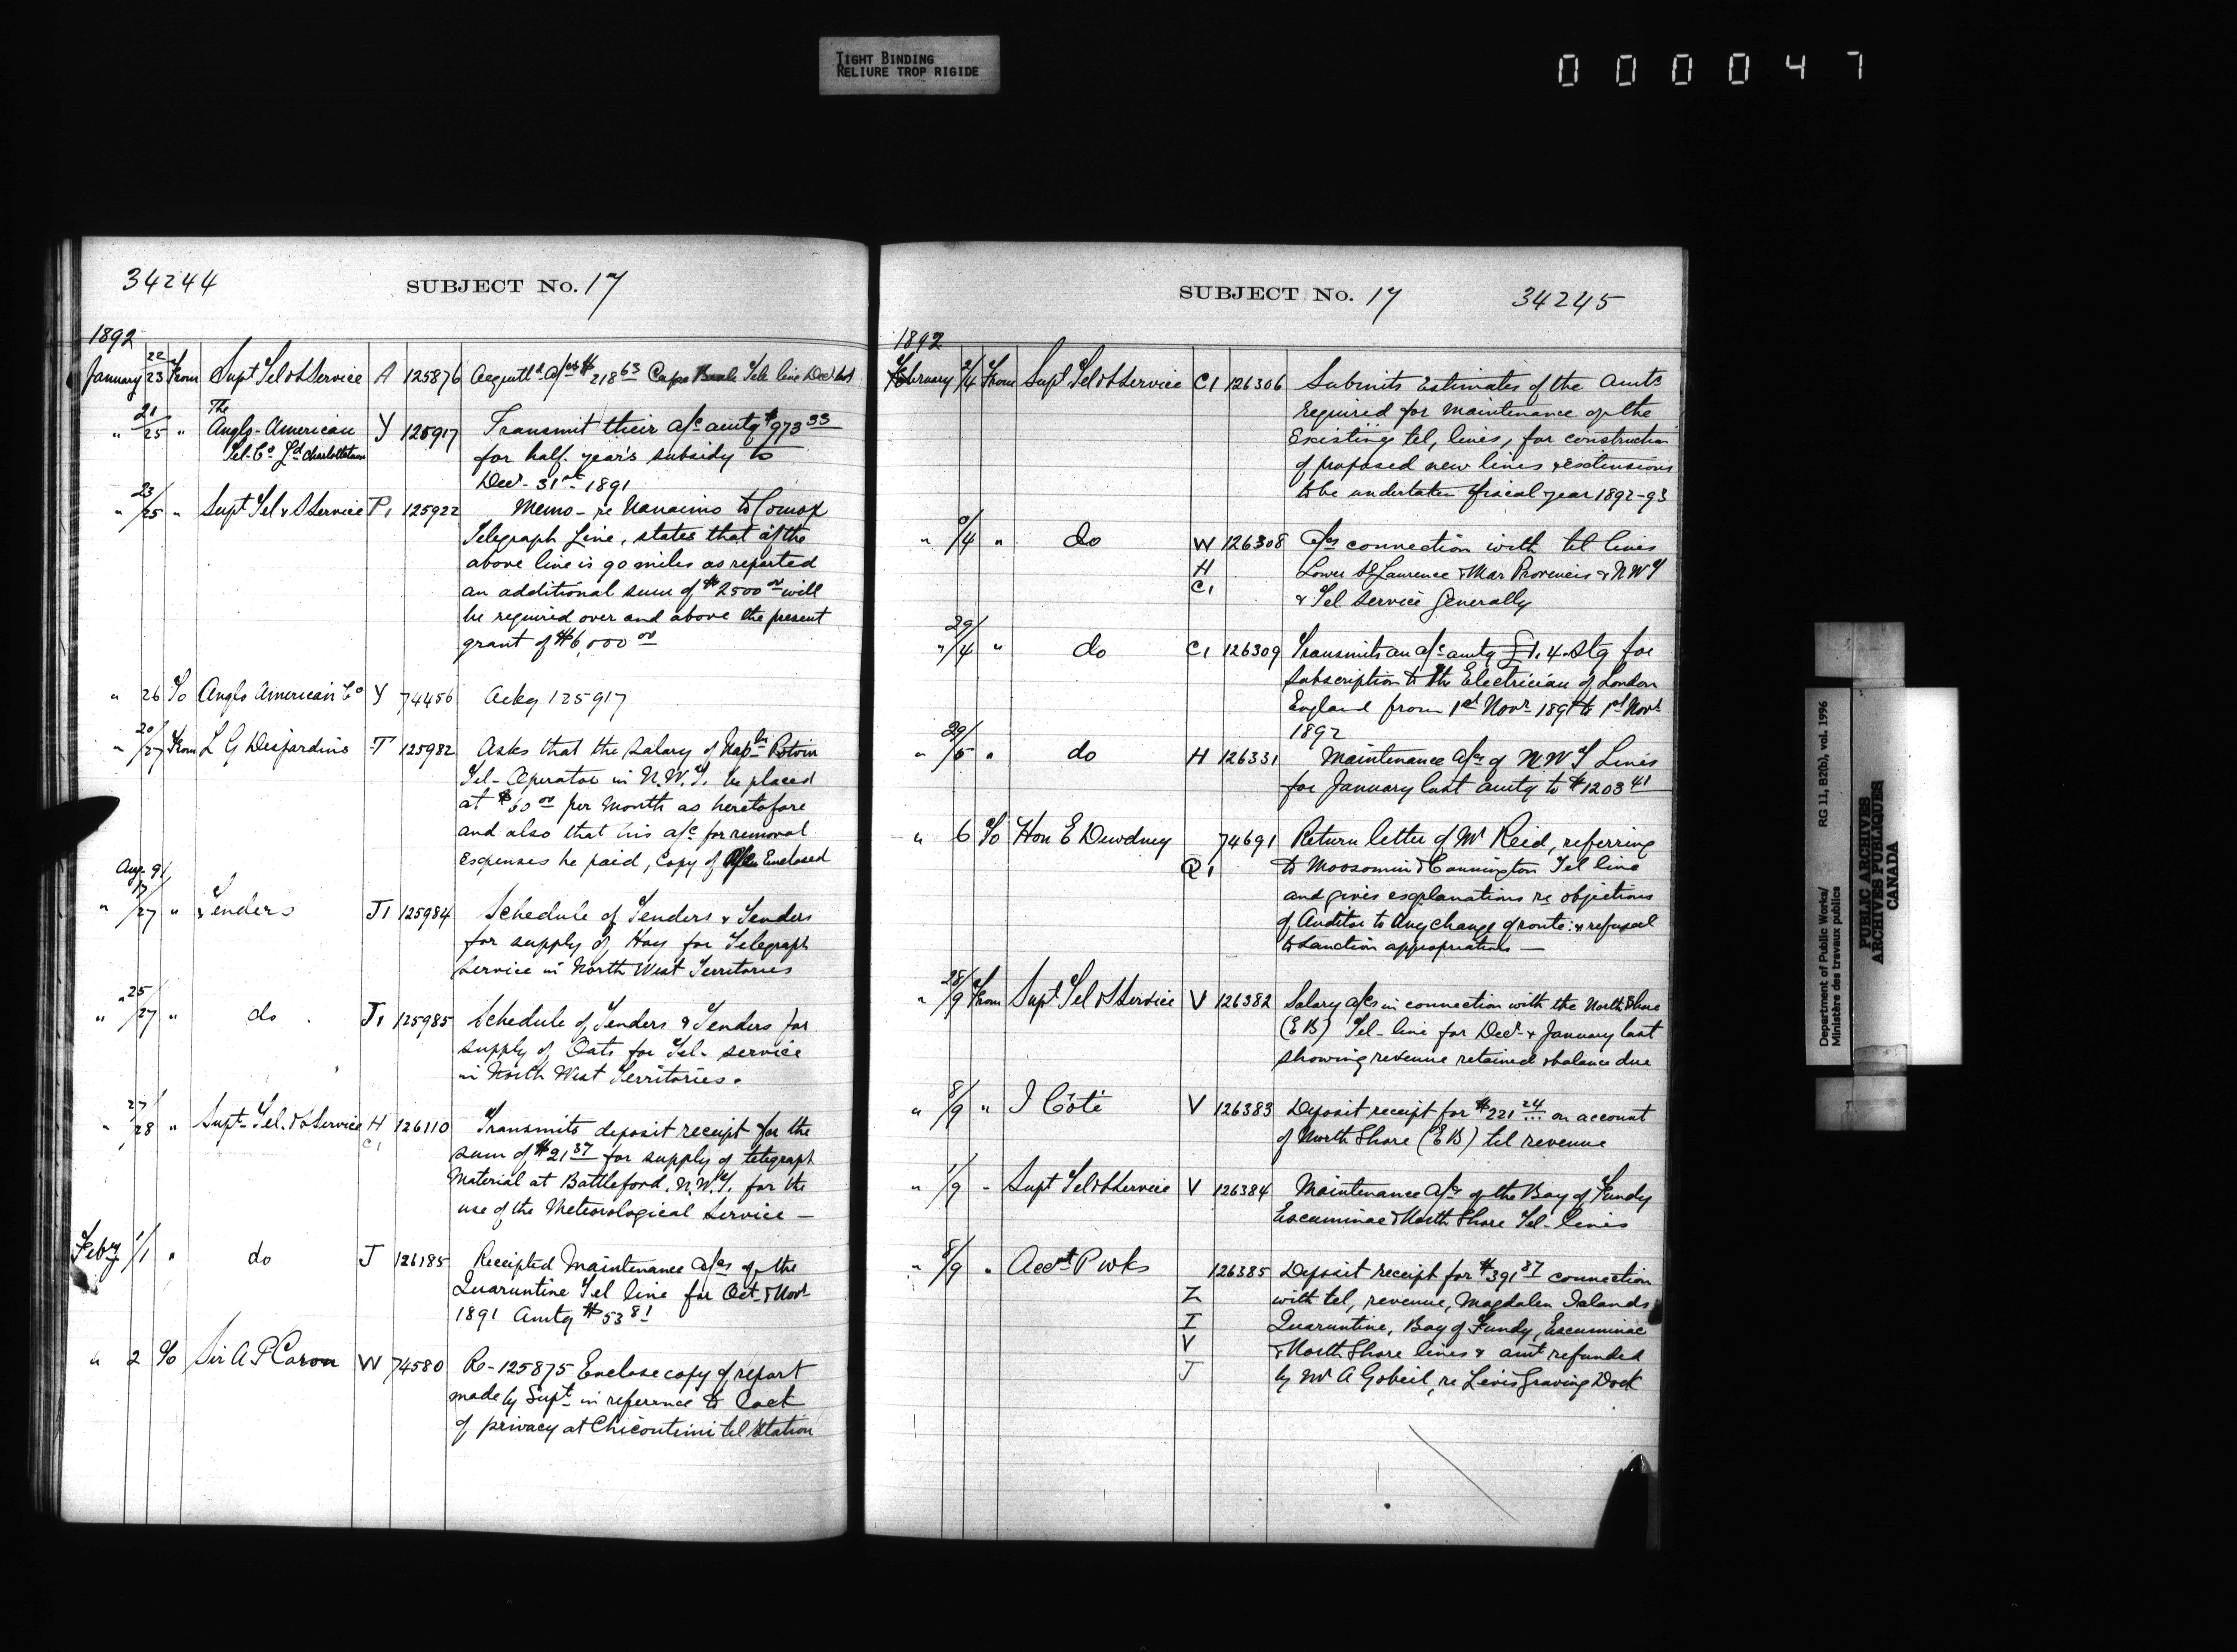 TIGHT BINDING
RELIURE TROP RIGIDE
000047
34244
SUBJECT No. 17
1892
January 22/23 From Supt Tel & S Service A 125876 Acquittd a/cs $218 63 Cape Tele line Decr last
" 21/25 " The Anglo-American Y 125917 Transmit their a/c amtg $973 33
Tel. Co Ld Charlottetown for half. year's subsidy to
Decr. 31st 1891
" 23/25 " Supt Tel & S Service P1 125922 Memo - re Nanaimo to Comox
Telegraph Line, states that if the
above line is 90 miles as reported
an additional sum of $2500 00 will
be required over and above the present
grant of $6,000 00
" 26 To Anglo American Co Y 74456 Ackg 125917
" 20/27 From L G Desjardins T 125982 Asks that the salary of Napln Potvin
Tel- Operator in N.W.T. be placed
at $60 00 per Month as heretofore
and also that his a/c for removal
Expenses be paid, Copy of Enclosed
Aug 91
" 17/27 " Tenders J1 125984 Schedule of Tenders & Tenders
for supply of Hay for Telegraph
Service in North West Territories
" 25/27 " do . J1 125985 Schedule of Tenders & Tenders for
supply of Oats for Tel- service
in North West Territories.
" 27/28 " Supt- Tel. & S Service H 126110 Transmits deposit receipt for the
C1 sum of $21 37 for supply of telegraph
Material at Battleford. N.W.T. for the
use of the Meteorological Service —
Feby 1/1 " do J 126185 Receipted Maintenance a/cs of the
Quaruntine Tel line for Oct. & Novr
1891 Amtg $53 81
" 2 To Sir A P Caron W 74580 Re- 125875 Enclose copy of report
made by Supt in reference to lack
of privacy at Chicoutimi tel Station
SUBJECT No. 17
34245
1892
February 2/4 From Supt Tel & S Service C1 126306 Submits Estimates of the Amts
required for maintenance of the
Existing tel, lines, for construction
of proposed new lines & extensions
to be undertaken fiscal year 1892-93
" /4 " do W 126308 a/cs connection with tel lines
H Lower St Laurence & Mar Provinces & N W T
C1 & Tel. Service Generally
" 29/4 " do C1 126309 Transmits an a/c amtg £1. 4. Stg for
Subscription to the Electrician of London
England from 1st Novr 1891 to 1st Novr
1892
" 29/5 " do H 126331 Maintenance a/cs of N W T Lines
for January last amtg to $1203 41
" 6 To Hon E Dewdney 74691 Return letter of Mr Reid, referring
Q1 to Moosomin & Cannington Tel line
and gives explanations re objections
of Auditor to any change of route: & refusal
to sanction appropriations —
" 28/9 From Supt Tel & S Service V 126382 Salary a/cs in connection with the North Shore
(E B) Tel- line for Decr- & January last
showing revenue retained & balance due
" 8/9 " I Côté V 126383 Deposit receipt for $221 24 on account
of North Shore (E B) tel revenue
" 1/9 - Supt Tel & S Service V 126384 Maintenance a/cs of the Bay of Fundy
Escuminac & North Shore Tel- lines
" 8/9 " Acct P wks 126385 Deposit receipt for $391 87 connection
Z with tel, revenue, Magdalen Islands
I Quaruntine, Bay of Fundy, Escuminac
V & North Shore lines & amt refunded
J by Mr A Gobeil, re Levis Graving Dock
Department of Public Works/
Ministère des travaux publics
RG 11, B2(b), vol. 1996
PUBLIC ARCHIVES
ARCHIVES PUBLIQUES
CANADA